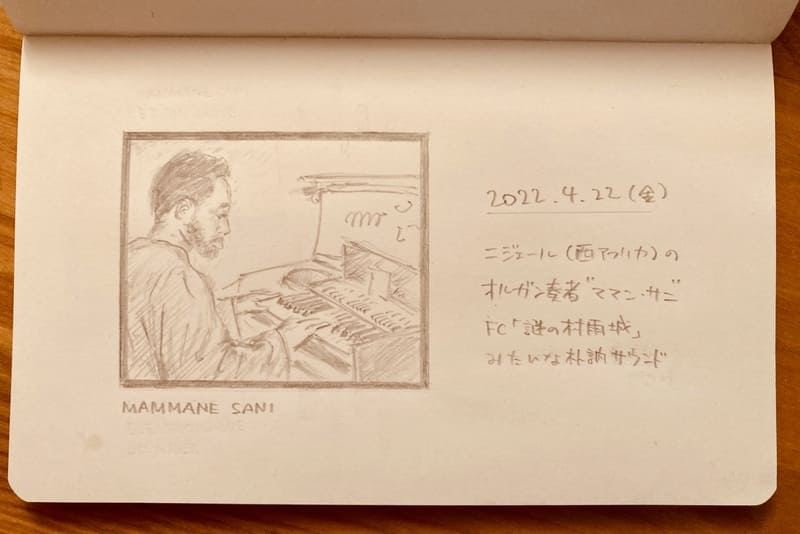 MAMMANE SANI
2022.4.22(金)
ニジェール(西アフリカ)の
オルガン奏者"ママン・サニ"
FC「謎の村雨城」
みたいな朴訥サウンド